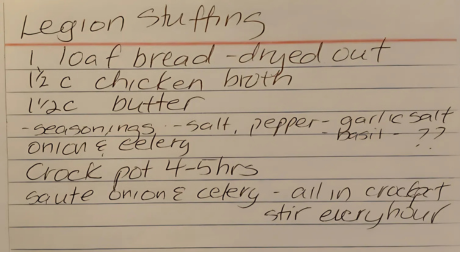 Legion Stuffing
1 loaf bread - dryed out
1½ c chicken broth
1½c butter
- seasonings - salt, pepper - garlic salt
basil - ??
onion & celery
Crock pot 4-5hrs
saute onion & celery - all in crockpt
stir every hour